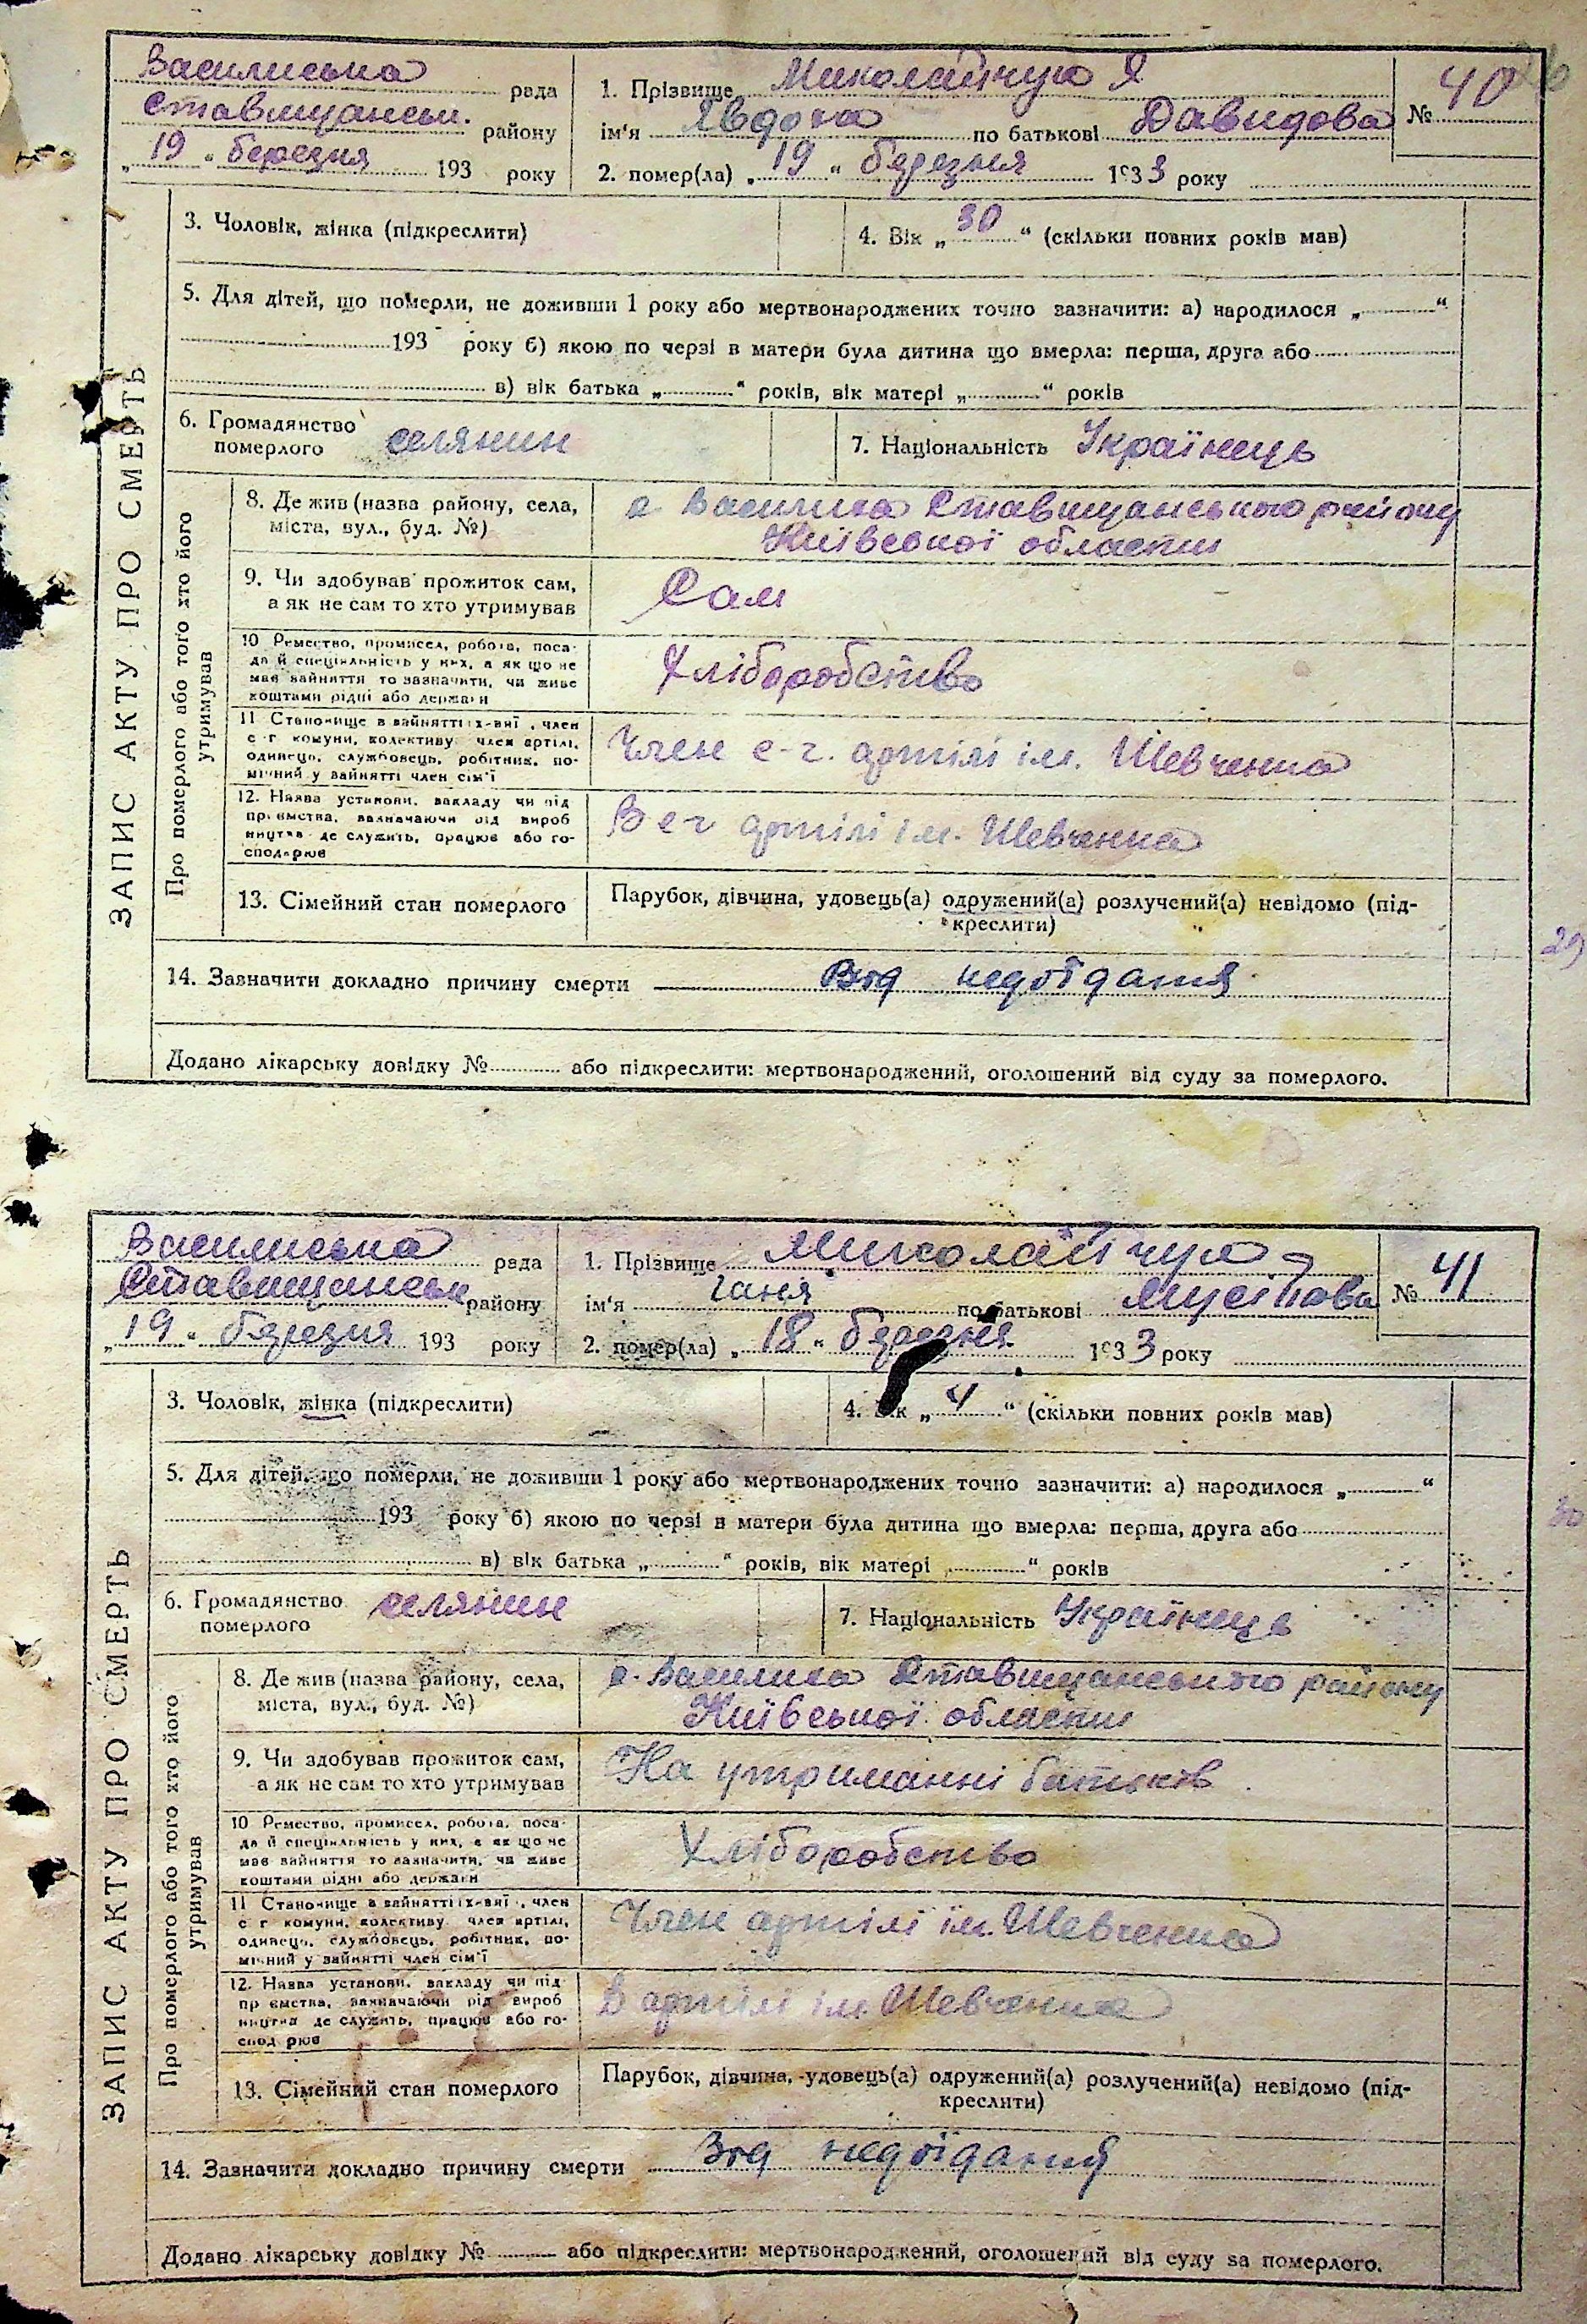 Василиська рада
Ставищанськ. району
„ 19 " березня 193 року
1. Прізвище Миколайчук Я
ім'я Явдоха по батькові Давидова
№ 40
2. помер(ла) „ 19 " березня 1933 року
3. Чоловік, жінка (підкреслити)
4. Вік „ 30 " (скільки повних років мав)
5. Для дітей, що померли, не доживши 1 року або мертвонароджених точно зазначити: а) народилося „ "
193 року б) якою по черзі в матери була дитина що вмерла: перша, друга або
в) вік батька „ " років, вік матері „ " років
6. Громадянство
померлого селянин
7. Національність Українець
8. Де жив (назва району, села,
міста, вул., буд. №)
с Василиха Ставищанського району
Київської области
9. Чи здобував прожиток сам,
а як не сам то хто утримував
Сам
10 Ремество, промисел, робота, поса-
да й спеціяльність у них, а як що не
має зайняття то зазначити, чи живе
коштами рідні або держави
Хліборобство
11 Становище в зайнятті: член
с г комуни, колективу член артілі,
одинець, службовець, робітник, по-
мічний у зайнятті член сім'ї
Член с-г. артілі ім. Шевченка
12. Назва установи, закладу чи під
приємства, зазначаючи рід вироб
ництва де служить, працює або го-
сподарює
В с г артілі ім. Шевченка
13. Сімейний стан померлого
Парубок, дівчина, удовець(а) одружений(а) розлучений(а) невідомо (під-
креслити)
14. Зазначити докладно причину смерти Від недоїдання
Додано лікарську довідку № або підкреслити: мертвонароджений, оголошений від суду за померлого.
ЗАПИС АКТУ ПРО СМЕРТЬ
Про померлого або того хто його
утримував
29
Василиська рада
Ставищанськ району
„ 19 " березня 193 року
1. Прізвище Миколайчук
ім'я Ганя по батькові Мусійова
№ 41
2. помер(ла) „ 18 " березня 1933 року
3. Чоловік, жінка (підкреслити)
4. Вік „ 4 " (скільки повних років мав)
5. Для дітей, що померли, не доживши 1 року або мертвонароджених точно зазначити: а) народилося „ "
193 року б) якою по черзі в матери була дитина що вмерла: перша, друга або
в) вік батька „ " років, вік матері „ " років
6. Громадянство
померлого селянин
7. Національність Українець
8. Де жив (назва району, села,
міста, вул., буд. №)
с. Василиха Ставищанського району
Київської области
9. Чи здобував прожиток сам,
а як не сам то хто утримував
На утриманні батьків
10 Ремество, промисел, робота, поса-
да й спеціяльність у них, а як що не
має зайняття то зазначити, чи живе
коштами рідні або держави
Хліборобство
11 Становище в зайнятті: член
с г комуни, колективу член артілі,
одинець, службовець, робітник, по-
мічний у зайнятті член сім'ї
Член артілі ім. Шевченка
12. Назва установи, закладу чи під
приємства, зазначаючи рід вироб
ництва де служить, працює або го-
сподарює
В артілі ім Шевченка
13. Сімейний стан померлого
Парубок, дівчина, удовець(а) одружений(а) розлучений(а) невідомо (під-
креслити)
14. Зазначити докладно причину смерти Від недоїдання
Додано лікарську довідку № або підкреслити: мертвонароджений, оголошений від суду за померлого.
ЗАПИС АКТУ ПРО СМЕРТЬ
Про померлого або того хто його
утримував
30